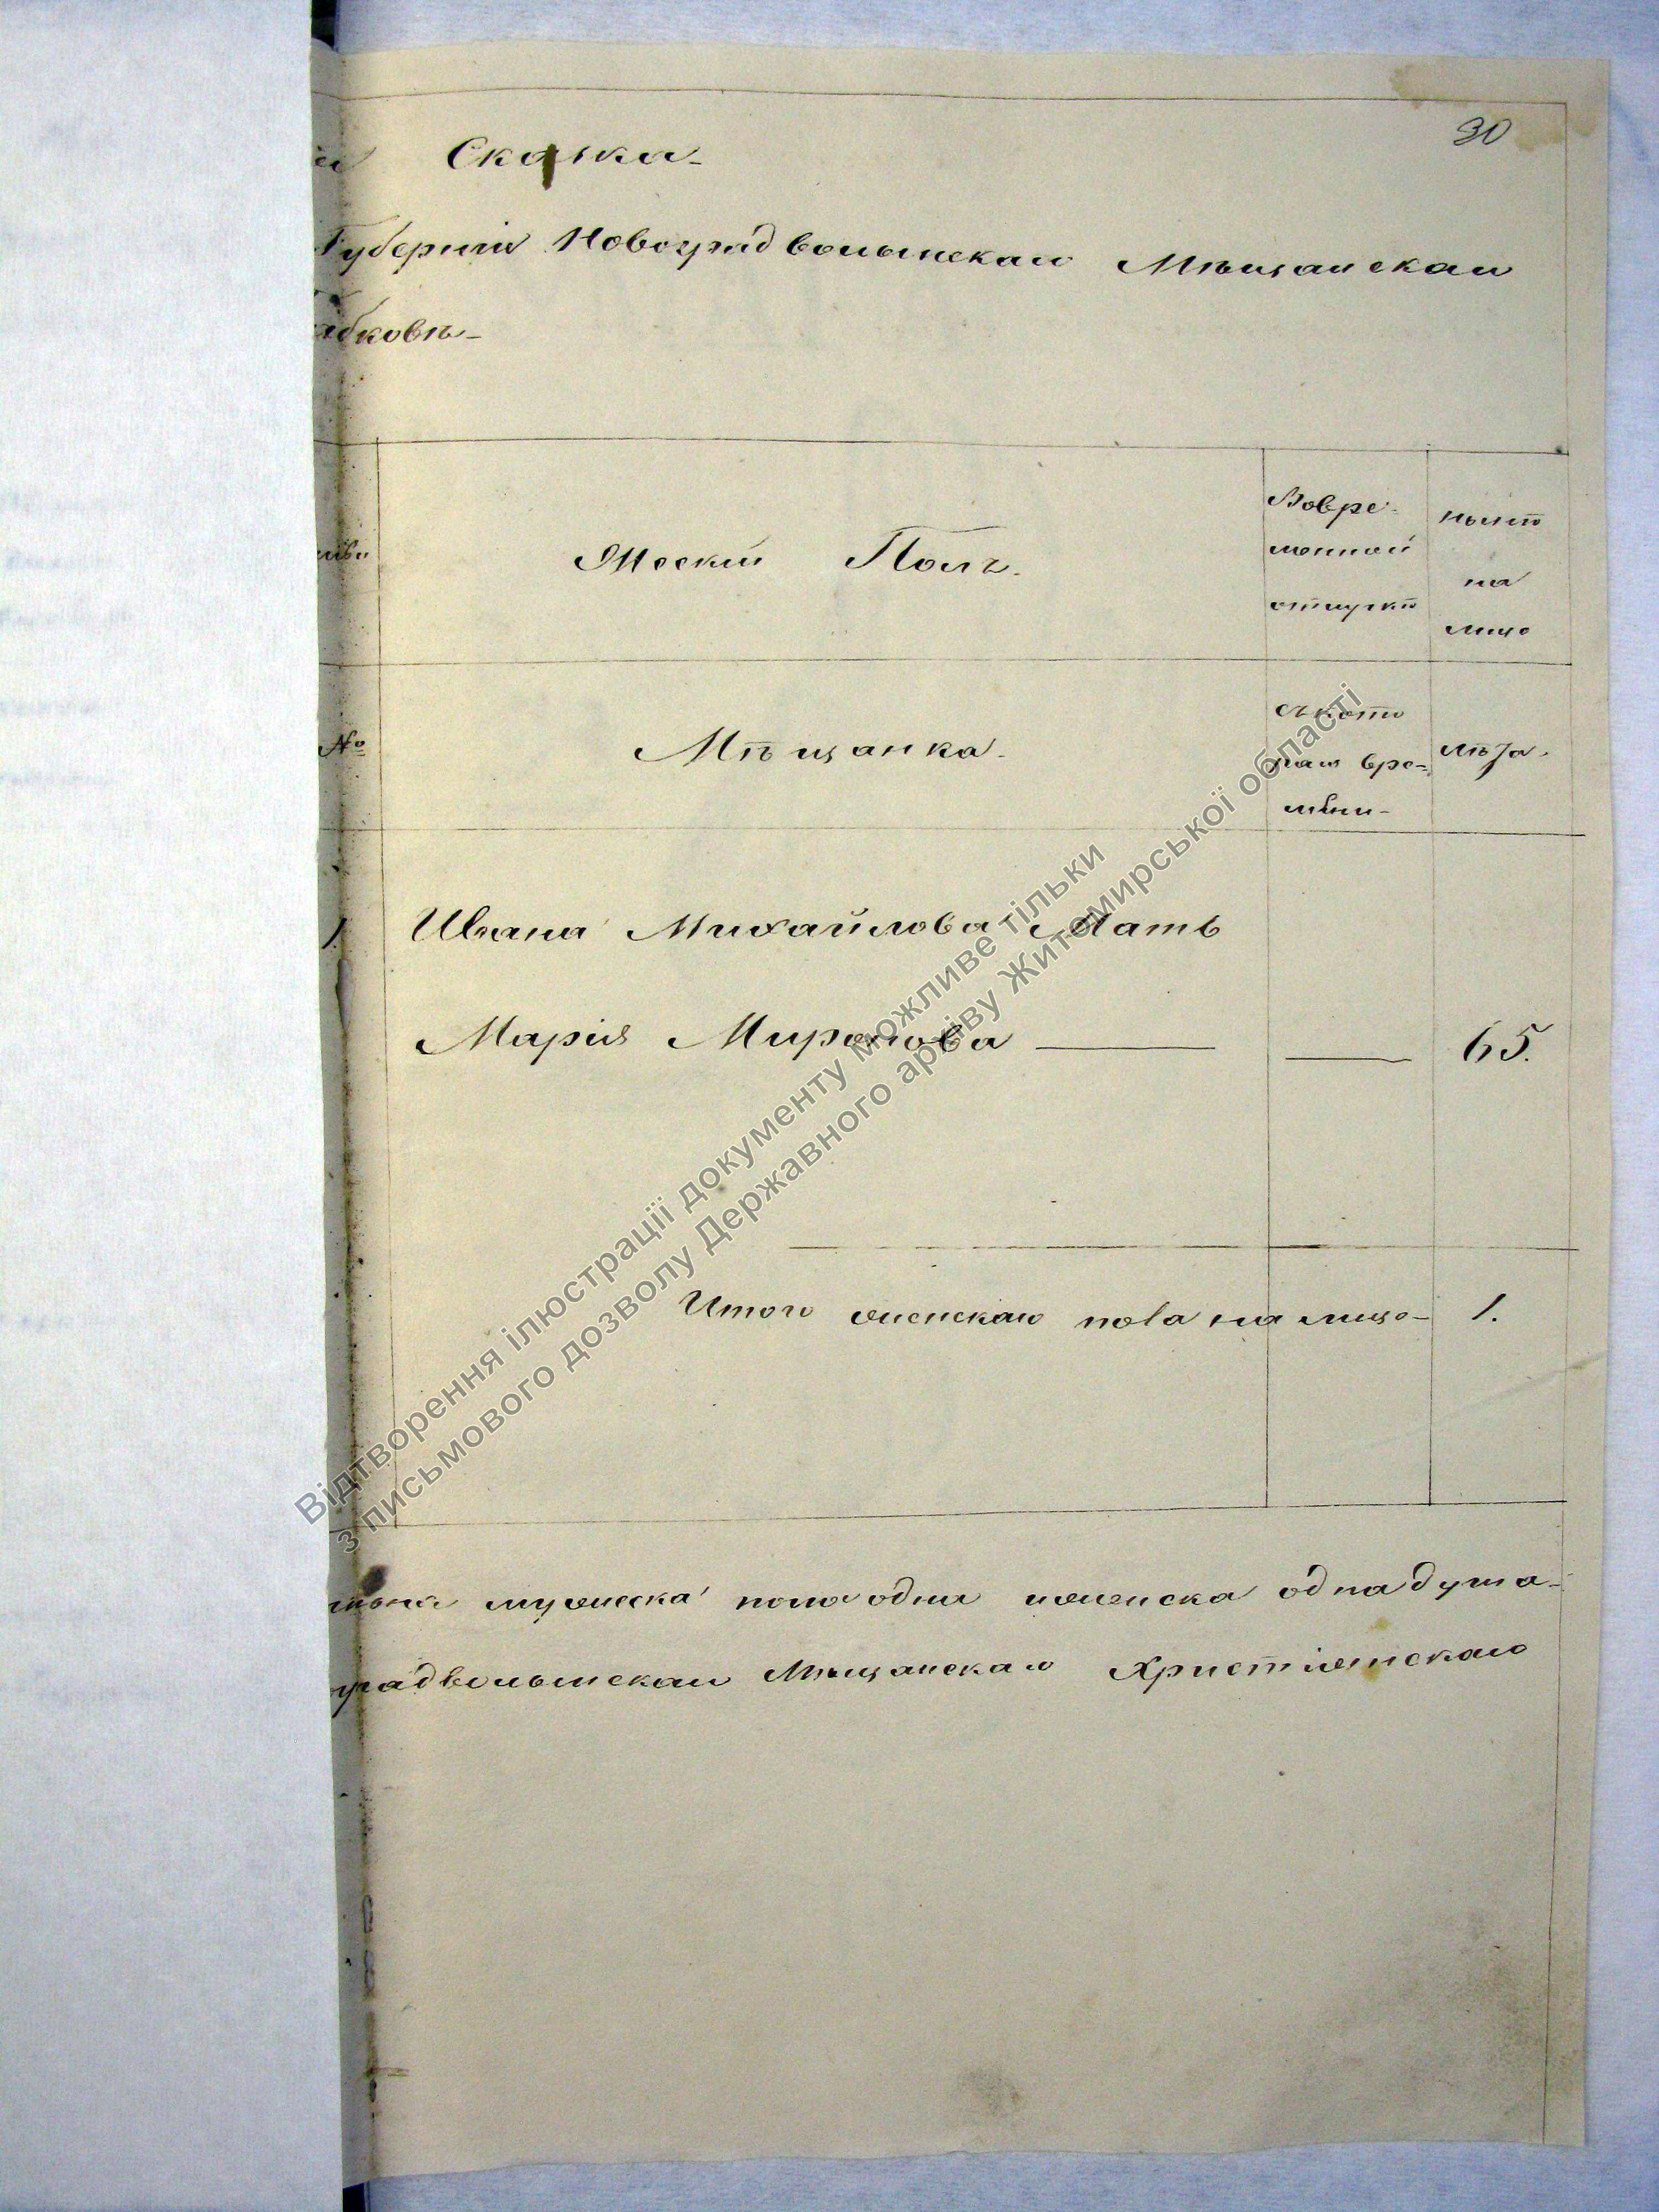 30
Сказка
Губерніи Новоградволынскаго Мѣщанскаго
бковъ
Женскій Полъ.
Вовре-
менной
отлучкѣ
Нынѣ
на
лицо
№
Мѣщанка.
съ кото
раго вре-
мени
лѣта.
1. Ивана Михайлова Мать
Марія Миронова — — 65.
Итого женскаго пола на лицо 1.
мужеска пола одна женска одна душа
градволынскаго Мѣщанскаго Христіянскаго
Відтворення ілюстрації документу можливе тільки
з письмового дозволу Державного архіву Житомирської області